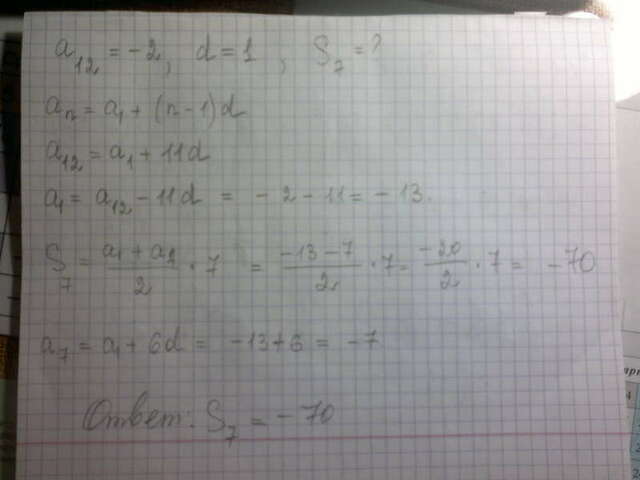 a₁₂ = -2, d = 1, S₇ = ?
aₙ = a₁ + (n-1)d
a₁₂ = a₁ + 11d
a₁ = a₁₂ - 11d = -2 - 11 = -13.
S₇ = (a₁ + a₇)/2 · 7 = (-13 - 7)/2 · 7 = -20/2 · 7 = -70
a₇ = a₁ + 6d = -13 + 6 = -7
Ответ: S₇ = -70